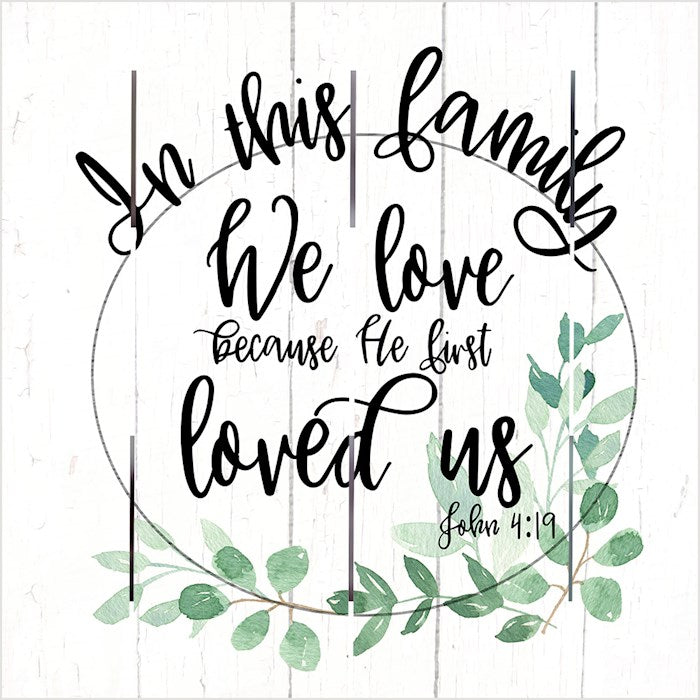 In this family
We love
because He first
loved us
John 4:19